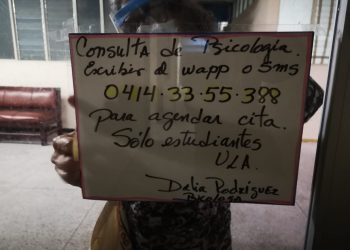 Consulta de Psicología.
Escribir al wapp o Sms
0414·33·55·388
Para agendar cita.
Sólo estudiantes
ULA.
Delia Rodríguez